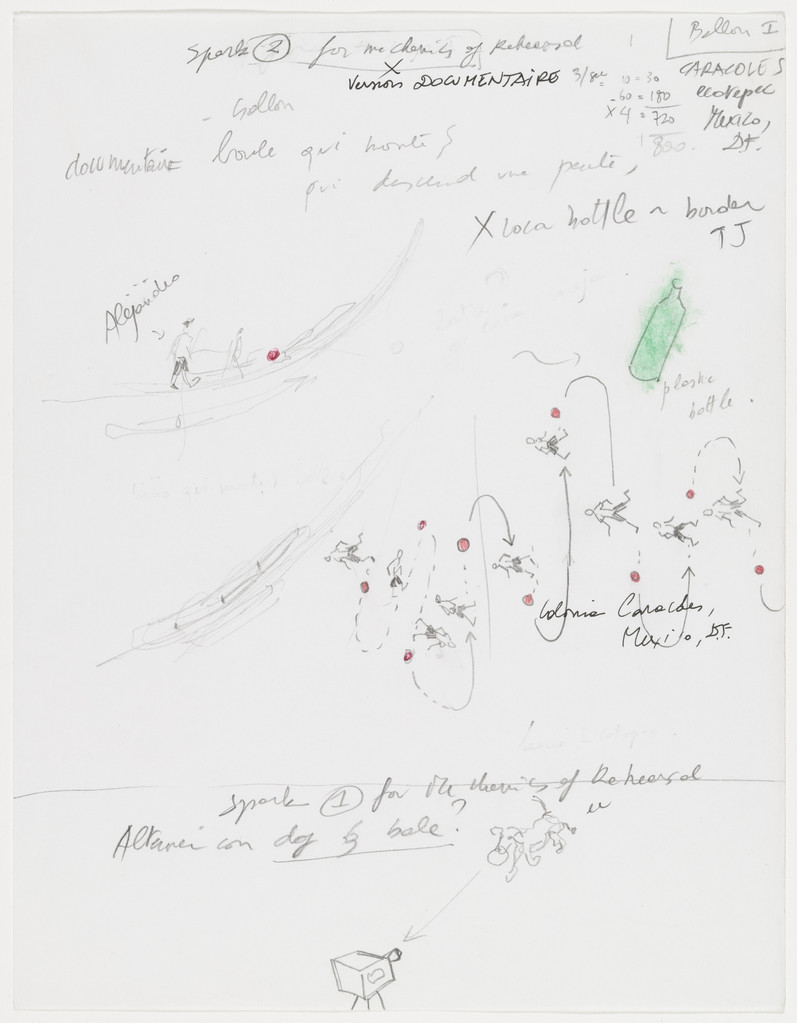 Ballon I
Spark 2 for mechanics of Rehearsal
X
Version DOCUMENTAIRE
3/sec
10 = 30
- 60 = 180
X 4 = 720
800.
CARACOLES
ecatepec
Mexico,
D.F.
- ballon
documentaire boule qui monte,
qui descend une pente,
X coca bottle ~ border
TJ
Alejandro
plastic
bottle.
Colonia Caracoles,
Mexico, D.F.
Spark 1 for Mechanics of Rehearsal
con dog & bale?